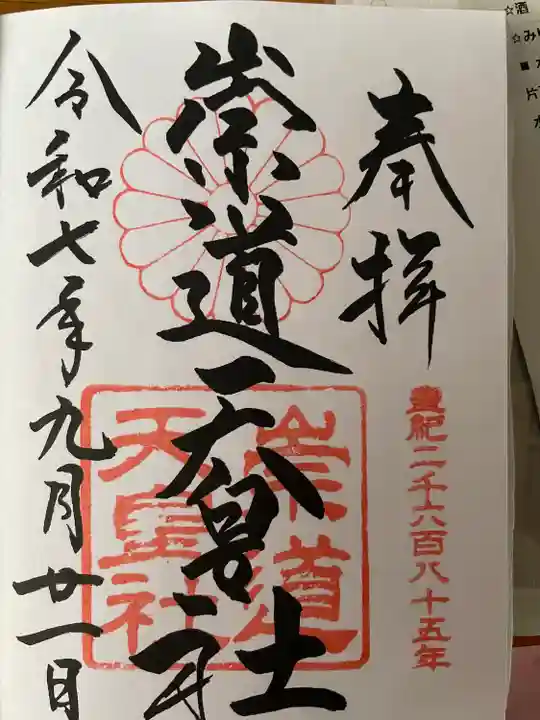 奉拝
皇紀二千六百八十五年
崇道天皇社
崇道
天皇社
令和七年九月廿一日
☆酒
☆み
■